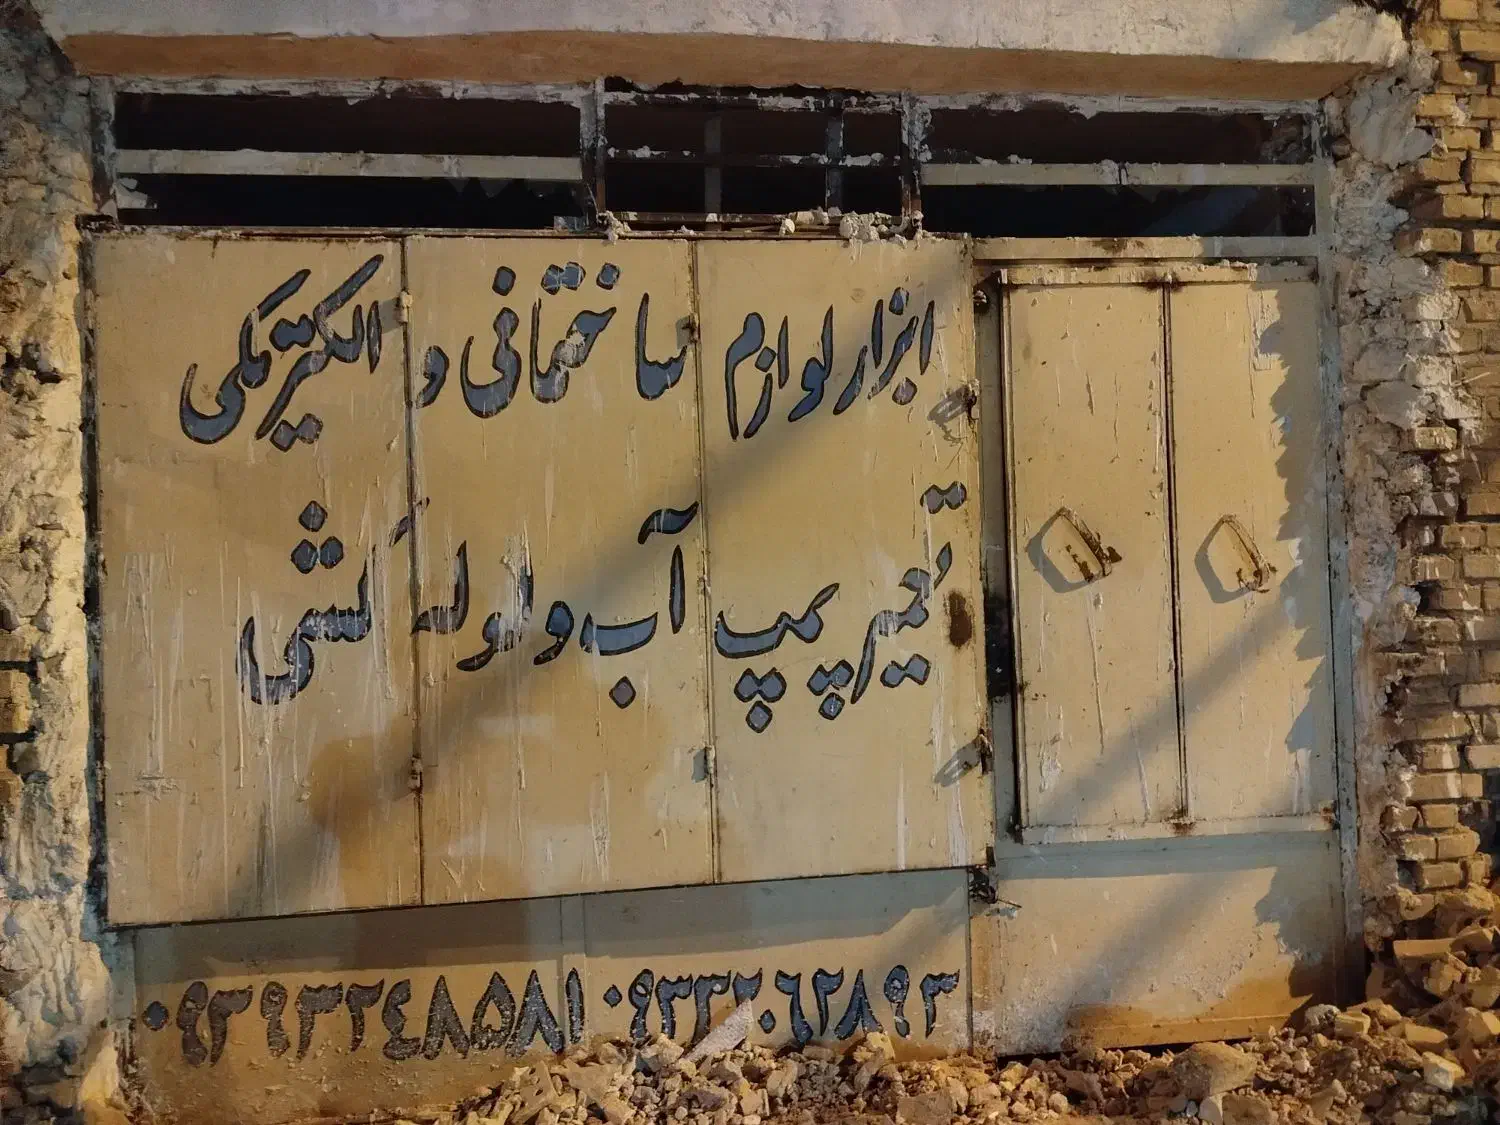 ابزار لوازم ساختمانی و الکتریکی
تعمیر پمپ آب و لوله کشی
۰۹۳۳۲۰۶۲۸۹۳